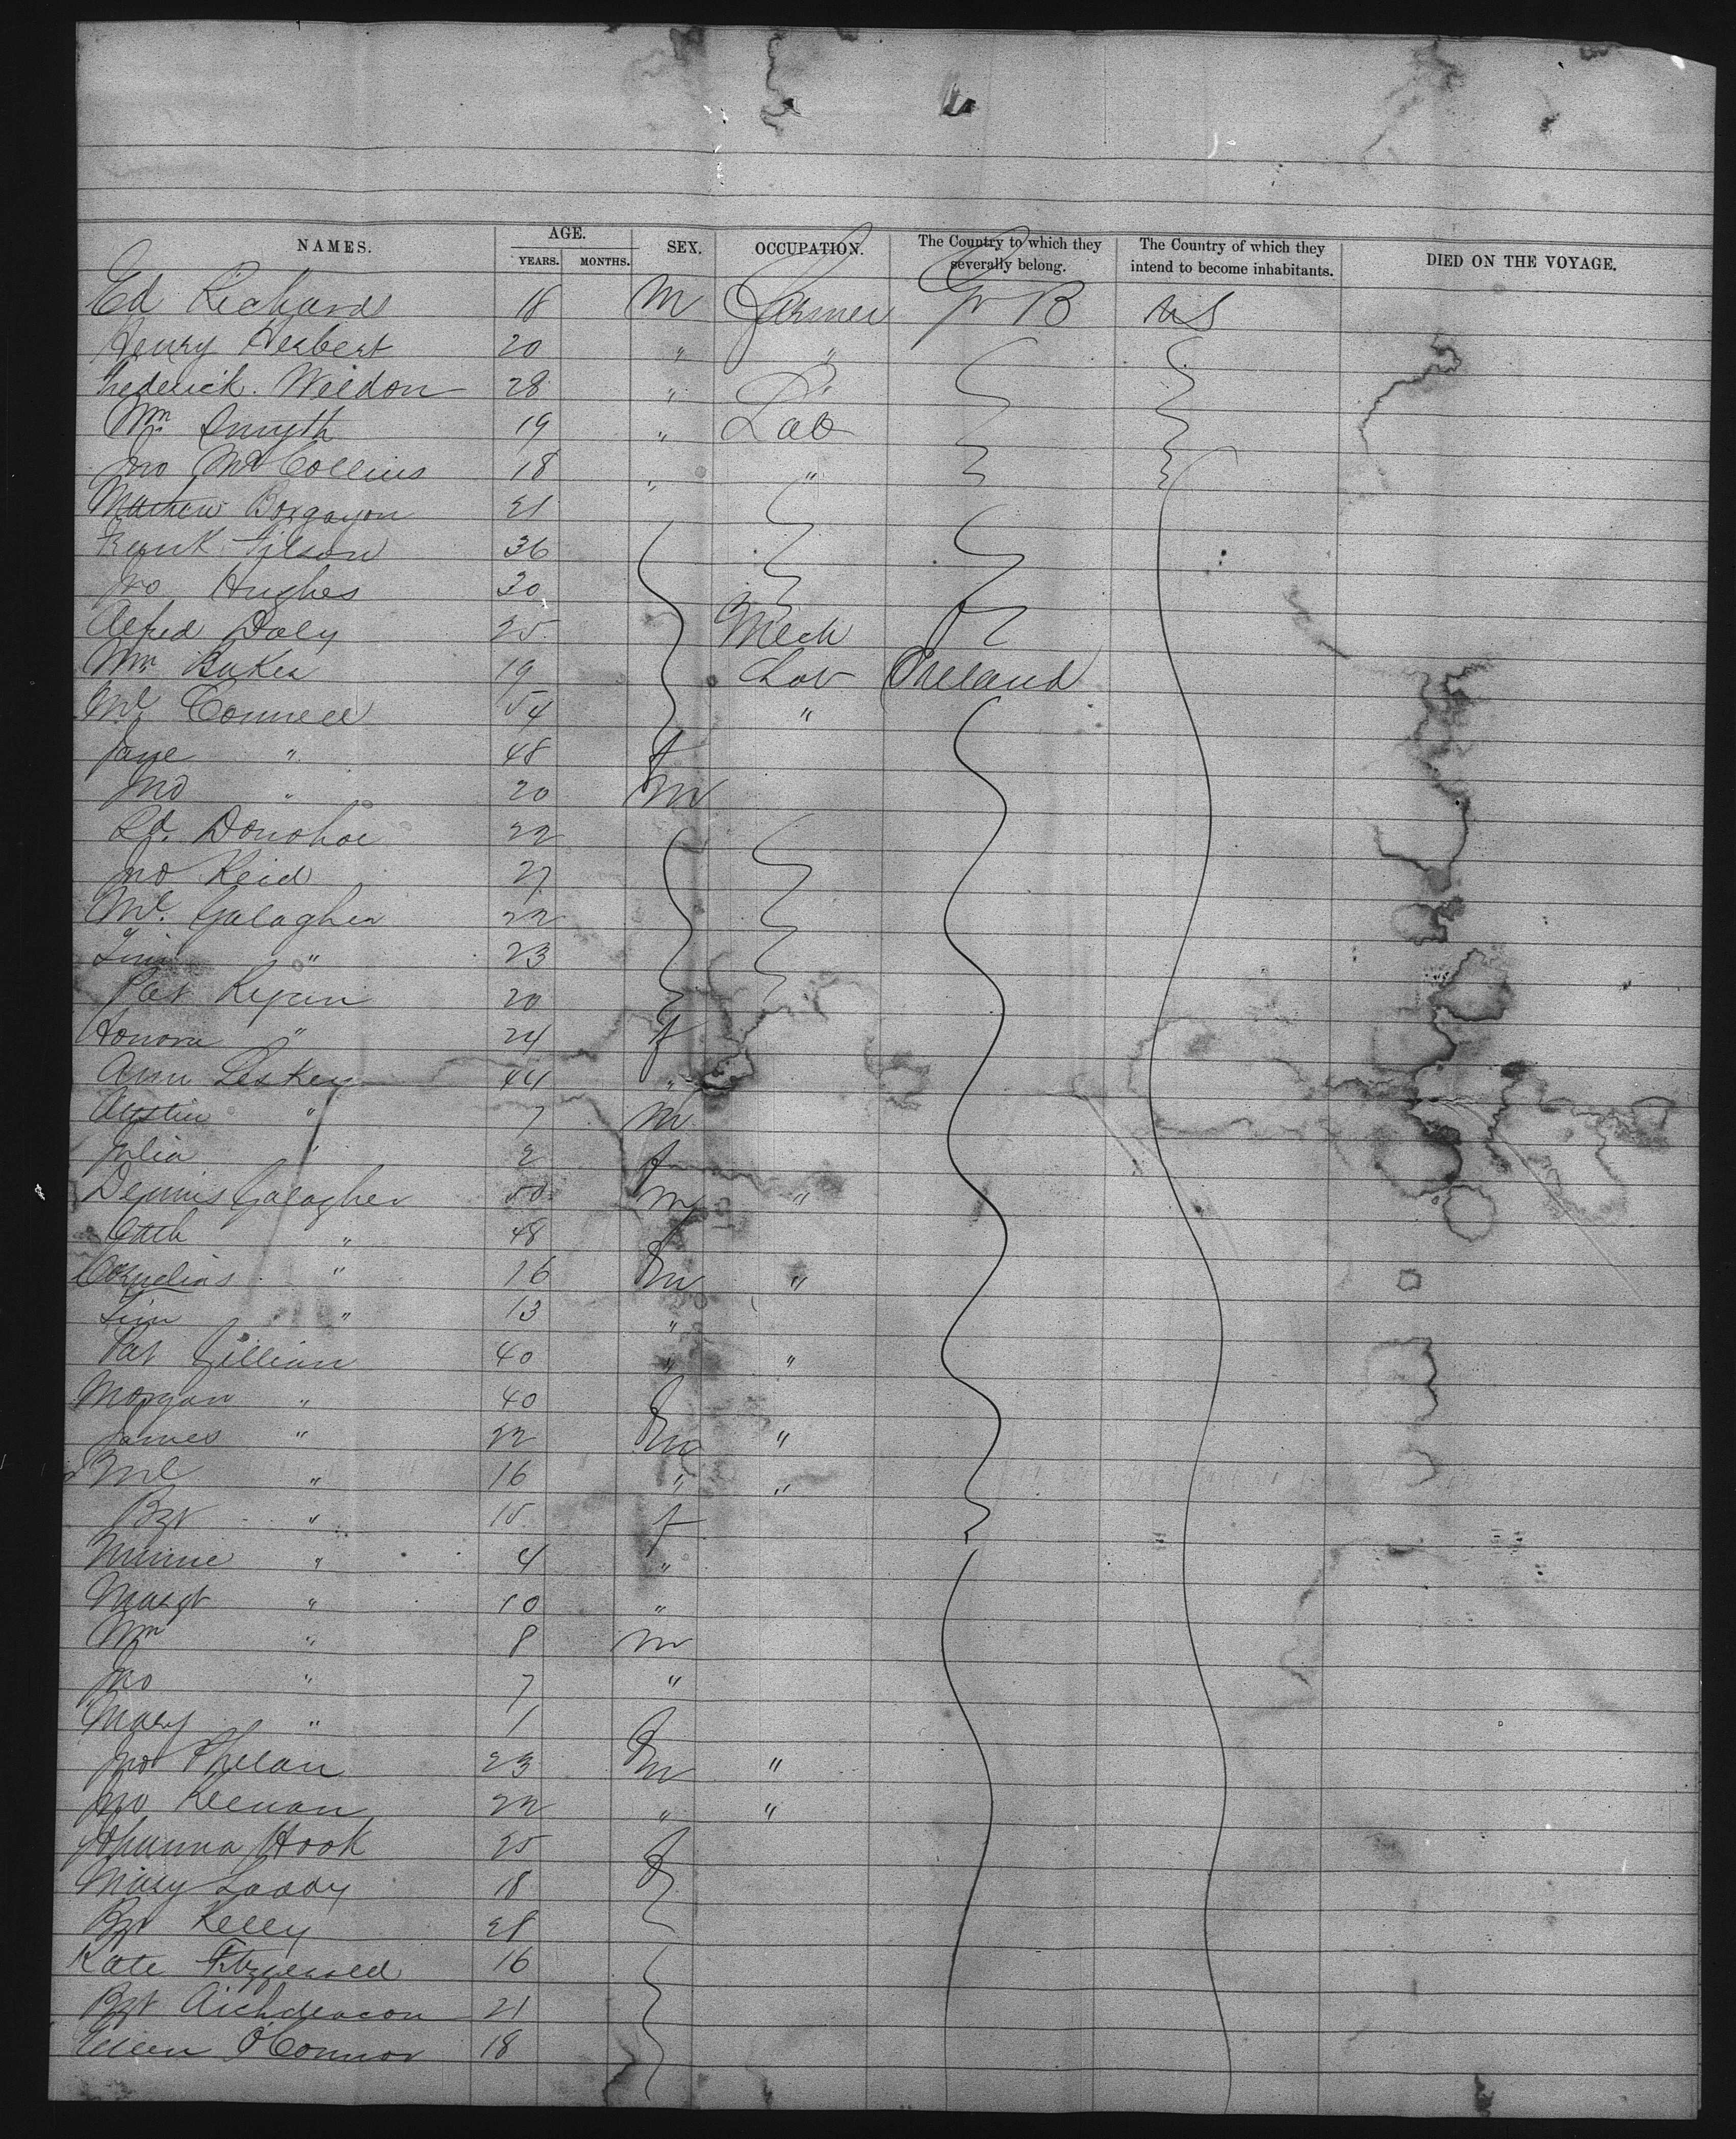 NAMES. AGE. SEX. OCCUPATION. The Country to which they severally belong. The Country of which they intend to become inhabitants. DIED ON THE VOYAGE.
YEARS. MONTHS.
Ed Richards 18 M Farmer Gr B US
Henry Herbert 20 " "
Frederick Weldon 28 " "
Wm Smyth 19 " Lab
Jno McCollins 18 " "
Mathew 21
Frank Gilson 36
Jno Hughes 30
Alfred Daly 25 Mech
Wm Baker 19 Lab Ireland
Ml Connell 54 "
Jane " 48 f
Jno " 20 m
Ed. Donohoe 22
Jno Reid 27
Ml. Galagher 22
Tim " 23
Pat Ryan 20
Honora " 24 f
Ann Leskey 44 "
Austin " 7 m
Julia " 2 f
Dennis Galagher 50 m "
Cath " 48 f
Cornelius " 16 m "
Tim " 13 "
Pat Gillian 40 " "
Morgan " 40
James " 22 m "
Ml " 16 " "
Bgt " 15 f
Minnie " 4 "
Margt " 10 "
Wm " 8 m
Jno " 7 "
Mary " 1 f
Jno Phelan 23 m "
Jno Keenan 22 " "
Johanna Hook 25 f
Mary Leddy 18
Bgt Kelly 28
Kate Fitzgerald 16
Bgt Archdeacon 21
Ellen O'Connor 18